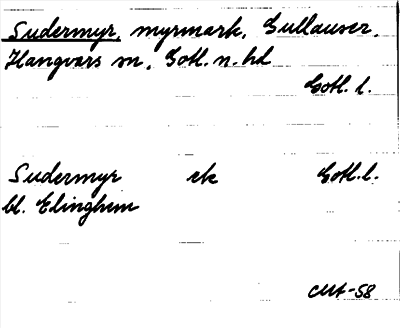 Sudermyr, myrmark, Gullauser,
Hangvars sn, Gotl. n. hd
Gotl. l.
Sudermyr ek Gotl. l.
bl. Elinghem